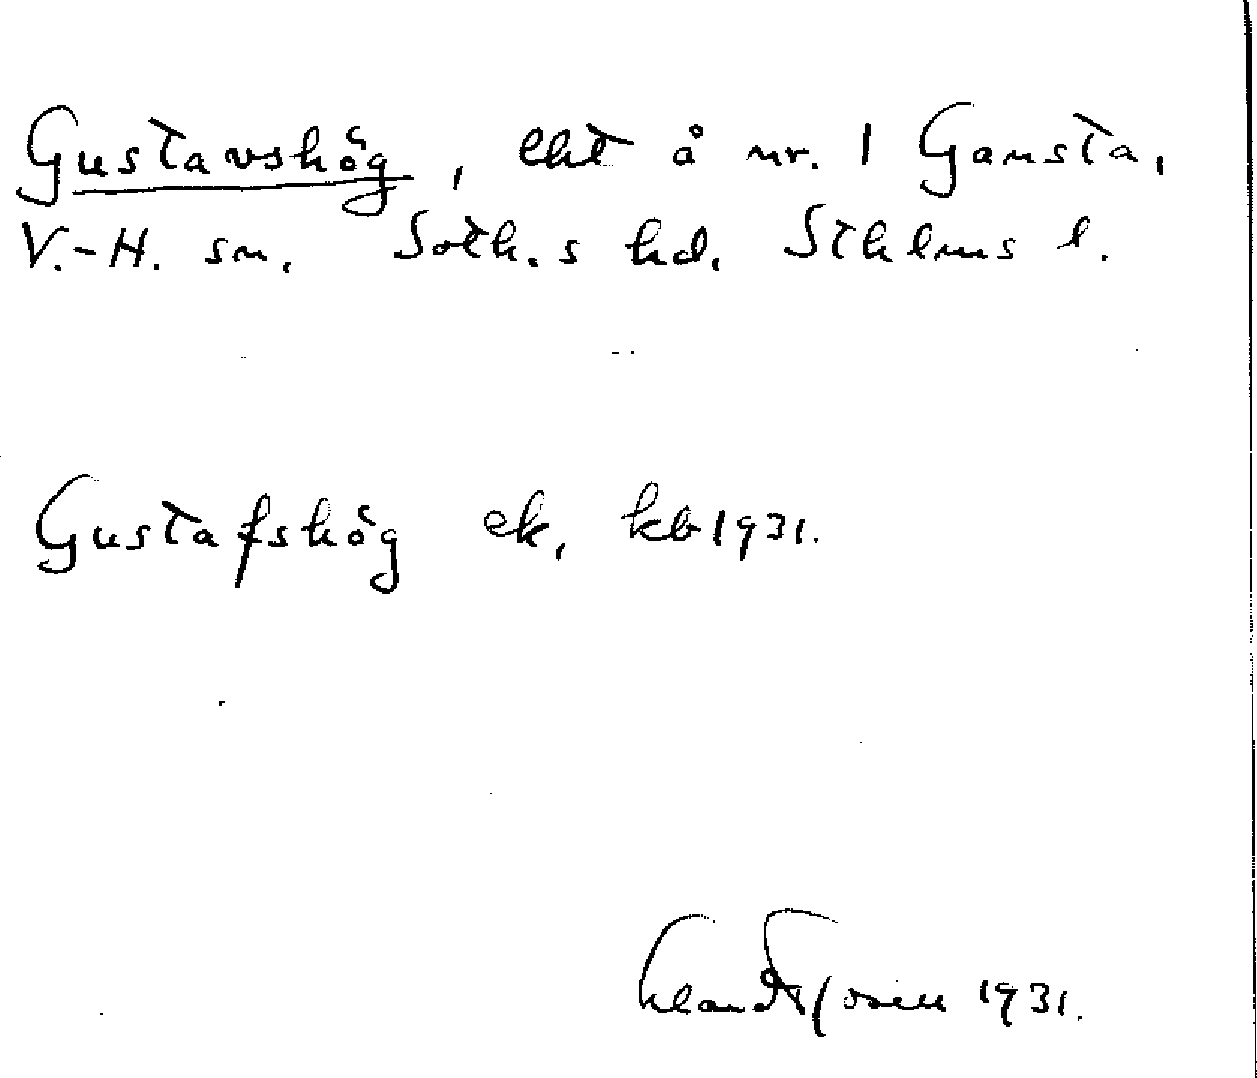 Gustavshög, lht å nr. 1 Gansta,
V.-H. sn. Soth.s hd. Sthlms l.
Gustafshög ek, kb 1931.
1931.